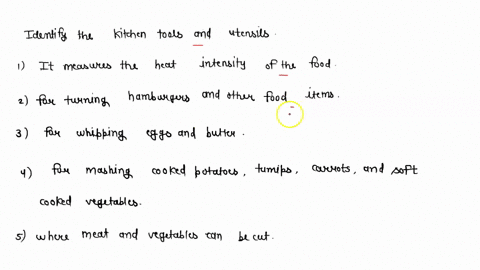 Identify the kitchen tools and utensils.
1) It measures the heat intensity of the food.
2) for turning hamburgers and other food items.
3) for whipping eggs and butter.
4) for mashing cooked potatoes, turnips, carrots, and soft
cooked vegetables.
5) where meat and vegetables can be cut.